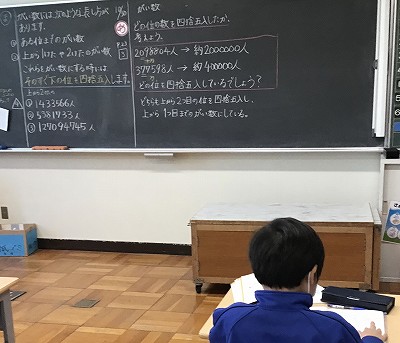 がい数には次のような表し方が
あります。
① ある位までのがい数
② 上から1けたや2けたのがい数
これらがい数にする時には
そのすぐ下の位を四捨五入します。
上から2けた
① 1433566人
② 5381733人
③ 127094745人
め
P.23
3
がい数
どの位の数を四捨五入したか、
考えよう。
2098804人 → 約2000000人
377598人 → 約400000人
どの位を四捨五入しているでしょう?
どちらも上から2つ目の位を四捨五入し、
上から1つ目までのがい数にしている。